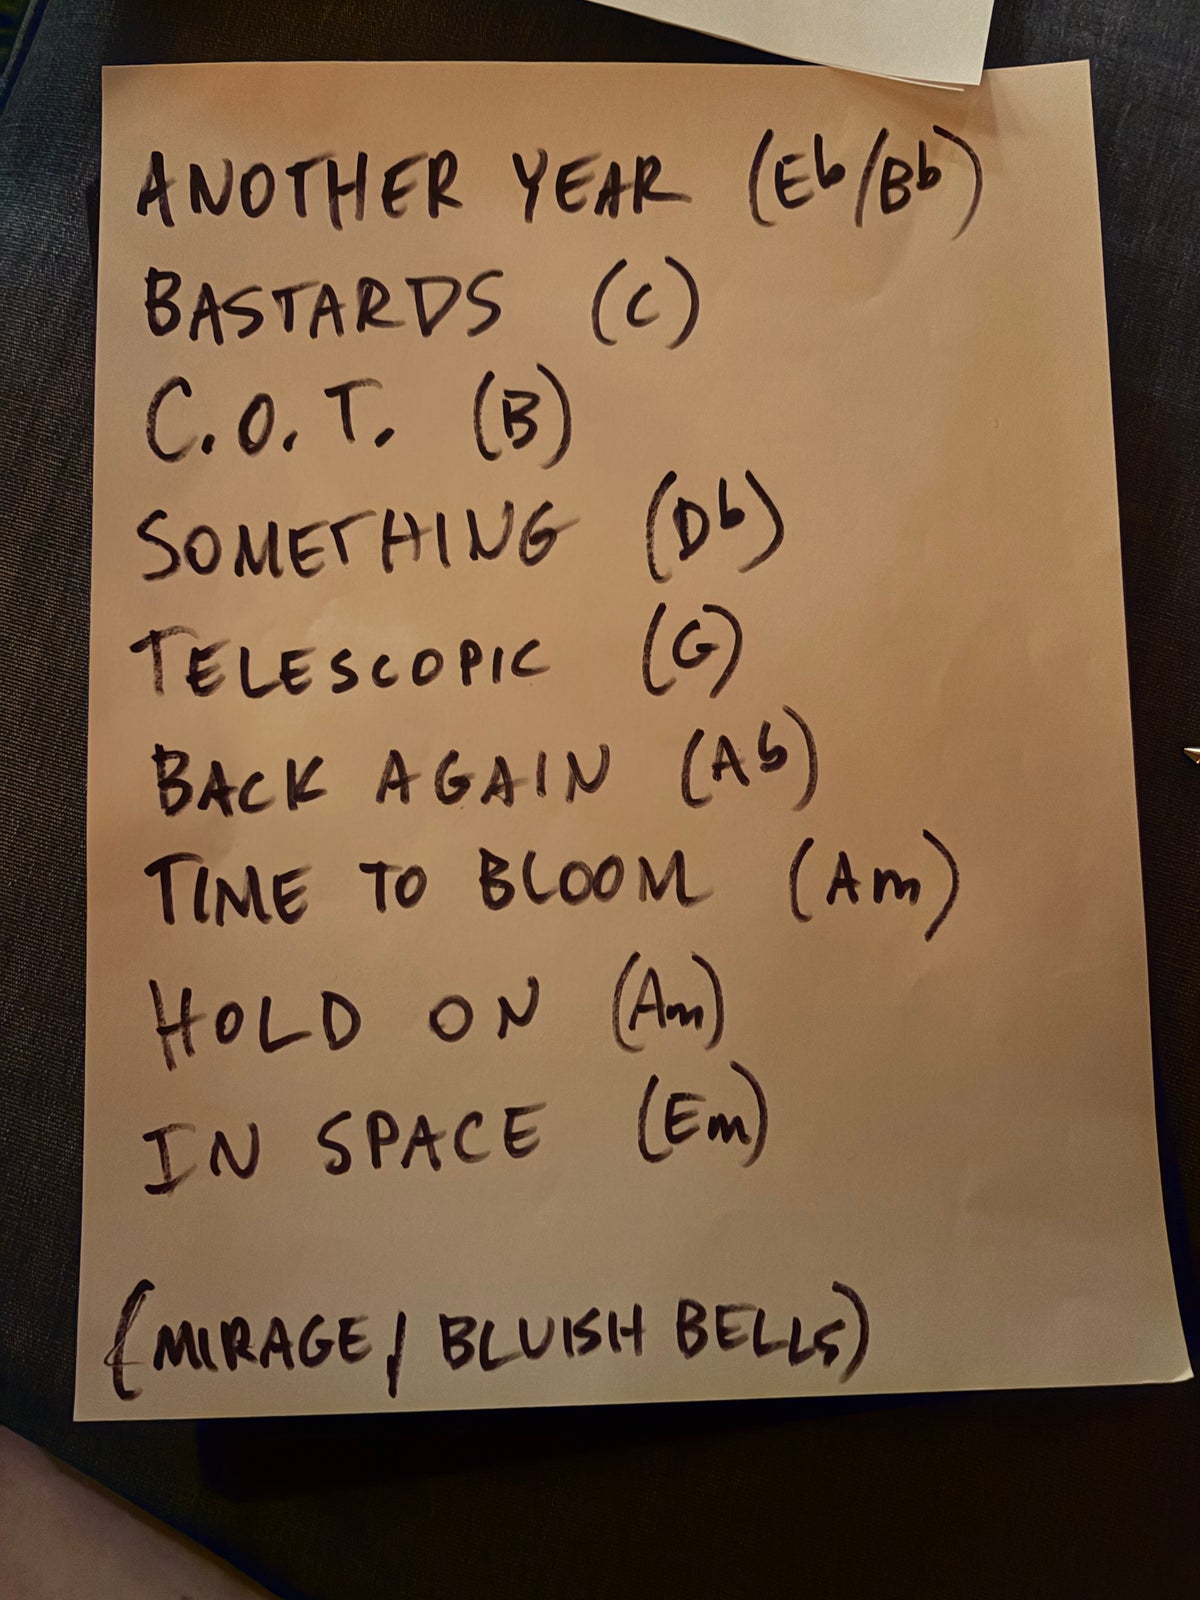 ANOTHER YEAR (Eb/Bb)
BASTARDS (C)
C.O.T. (B)
SOMETHING (Db)
TELESCOPIC (G)
BACK AGAIN (Ab)
TIME TO BLOOM (Am)
HOLD ON (Am)
IN SPACE (Em)
(MIRAGE/BLUISH BELLS)